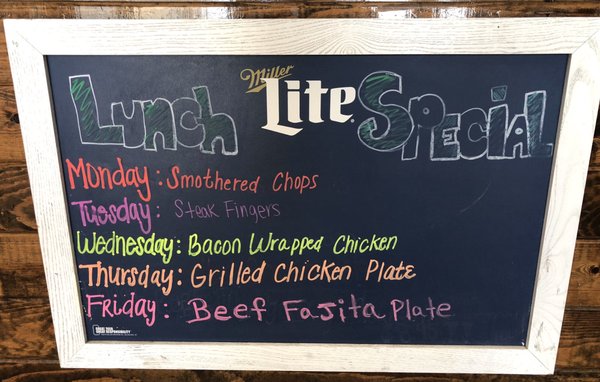 Lunch Miller Lite Special
Monday: Smothered Chops
Tuesday: Steak Fingers
Wednesday: Bacon Wrapped Chicken
Thursday: Grilled Chicken Plate
Friday: Beef Fajita Plate